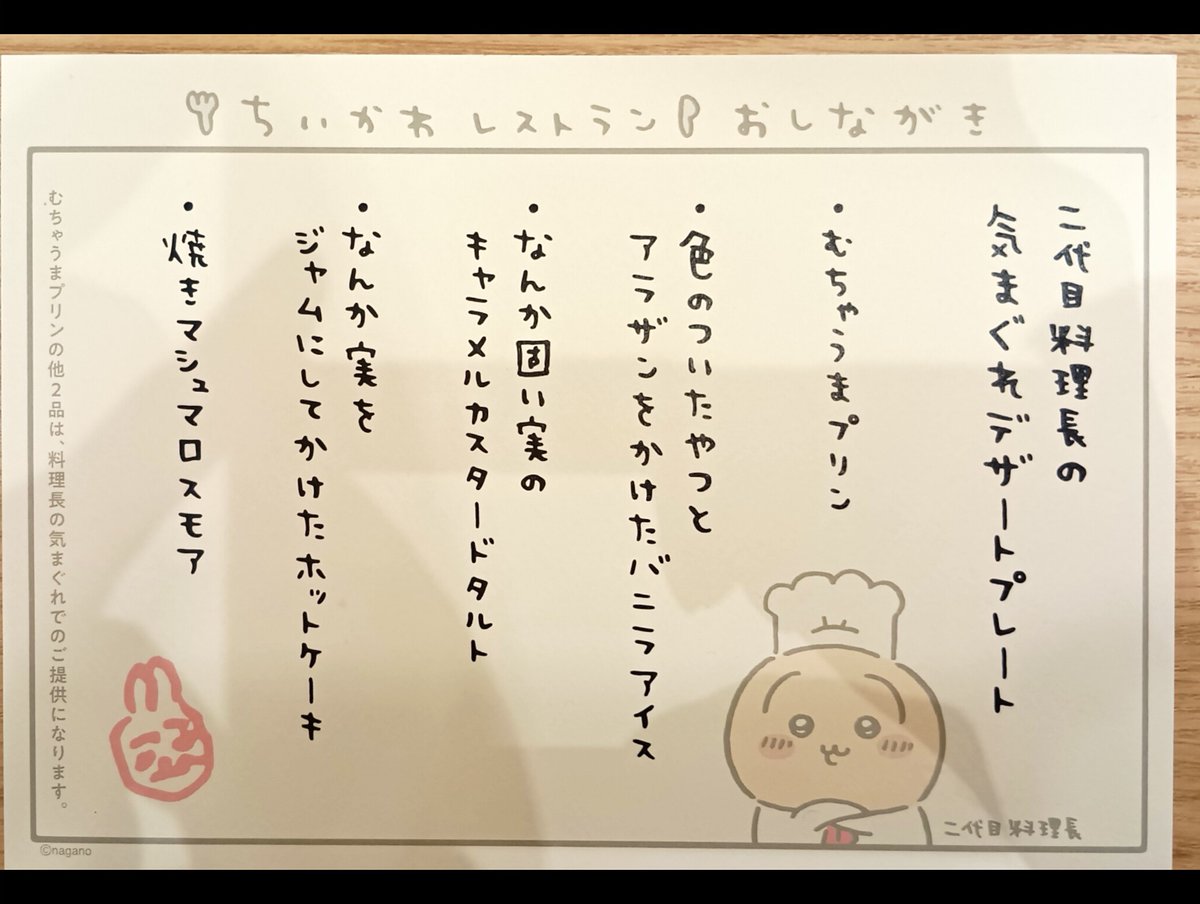 ちいかわレストラン おしながき
二代目料理長の
気まぐれデザートプレート
・むちゃうまプリン
・色のついたやつと
アラザンをかけたバニラアイス
・なんか固い実の
キャラメルカスタードタルト
・なんか実を
ジャムにしてかけたホットケーキ
・焼きマシュマロスモア
むちゃうまプリンの他2品は、料理長の気まぐれでのご提供になります。
二代目料理長
©nagano